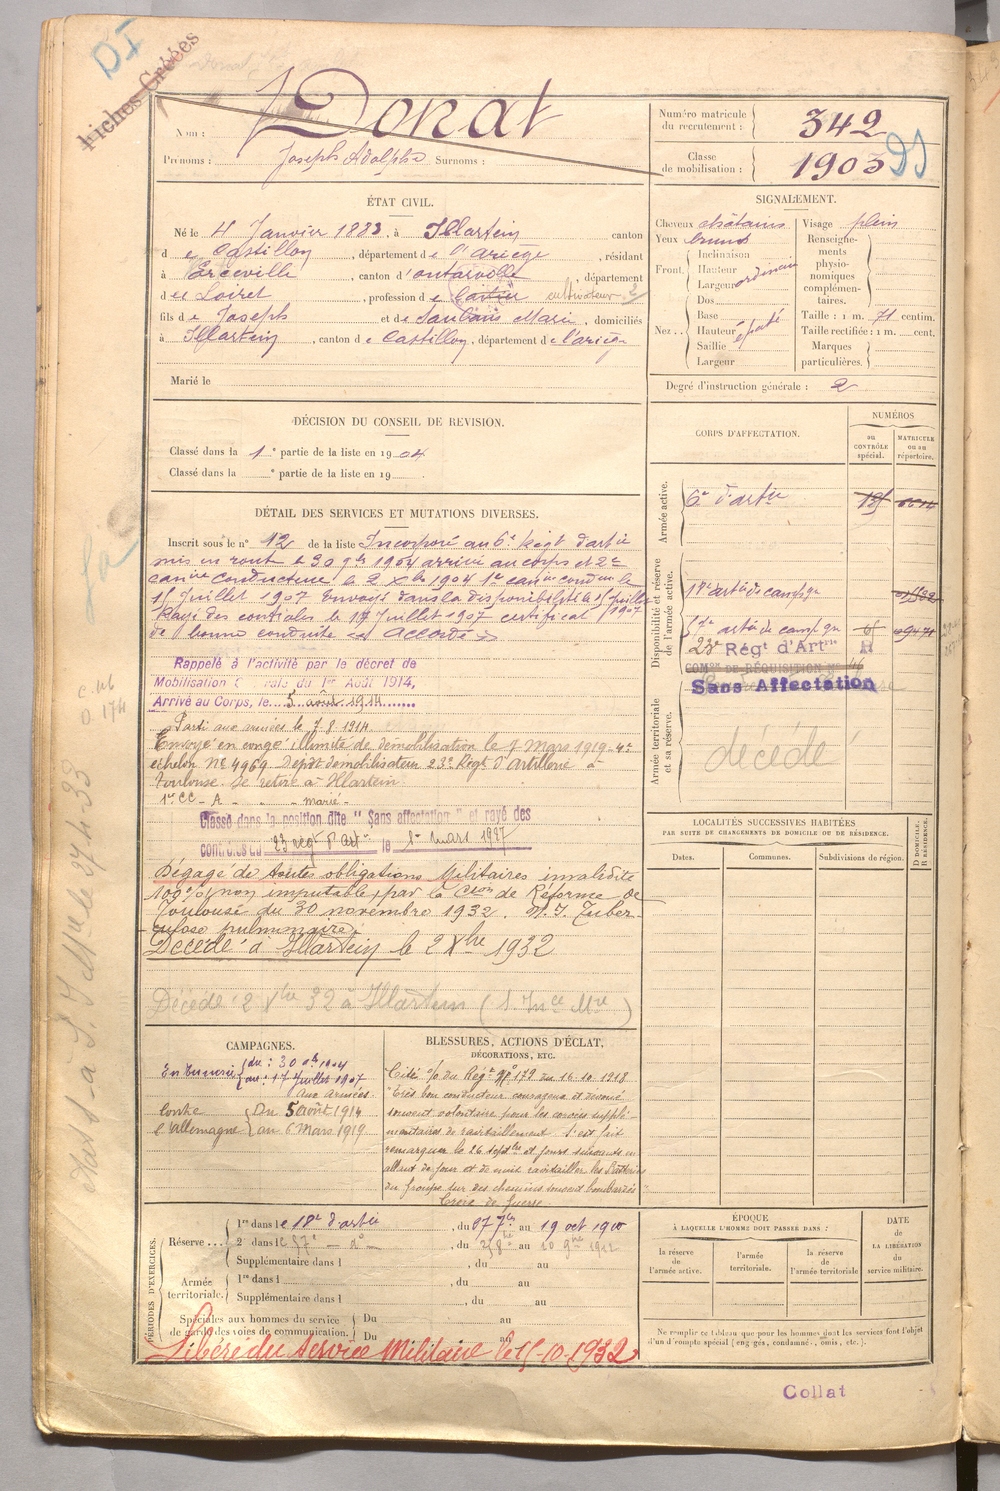 DI
Fiches Créées
Nom : Donat
Prénoms : Joseph Adolphe Surnoms :
Numéro matricule du recrutement : 342
Classe de mobilisation : 1903
ÉTAT CIVIL.
Né le 4 Janvier 1883, à Illartein canton
de Castillon, département de l'ariège, résidant
à Erceville, canton d'outarville, département
du Loiret, profession de cultivateur
fils de Joseph et de Marie, domiciliés
à Illartein, canton de Castillon, département de l'ariège
Marié le
SIGNALEMENT.
Cheveux châtains
Yeux bruns
Front. Inclinaison
Hauteur
Largeur ordinaire
Nez.. Dos
Base
Hauteur épaté
Saillie
Largeur
Visage plein
Renseignements physionomiques complémentaires.
Taille : 1 m. 71 centim.
Taille rectifiée : 1 m. cent.
Marques particulières.
Degré d'instruction générale : 2
DÉCISION DU CONSEIL DE REVISION.
Classé dans la 1e partie de la liste en 1904
Classé dans la e partie de la liste en 19
DÉTAIL DES SERVICES ET MUTATIONS DIVERSES.
Inscrit sous le n° 12 de la liste Incorporé au 6e Régt d'artie
mis en route le 30 9bre 1904 arrivé au corps et 2e
canier conducteur le 2 Xbre 1904 1e canier condeur le
15 Juillet 1907 Envoyé dans la disponibilité le 17 Juillet 1907
Rayé des controles le 17 Juillet 1907 certificat
de bonne conduite « accordé »
Rappelé à l'activité par le décret de
Mobilisation Générale du 1er Août 1914,
Arrivé au Corps, le 5 août 1914
Parti aux armées le 7.8.1914
Envoyé en congé illimité de démobilisation le 7 Mars 1919 4e
échelon N° 4969 Dépôt démobilisateur 23e Régt d'Artillerie à
Toulouse. Se retire à Illartein
1er CC - A - marié -
Classé dans la position dite "Sans affectation" et rayé des
contrôles du 23 rég d'art le 1er mars 1927
Dégagé de toutes obligations Militaires invalidité
100% non imputable, par la Cion de Réforme de
Toulouse du 30 novembre 1932. Tuber
culose pulmonaire.
Décédé à Illartein le 2 Xbre 1932
Décédé 2 Xbre 32 à Illartein
CORPS D'AFFECTATION.
NUMÉROS
au CONTRÔLE spécial.
MATRICULE ou au répertoire.
Armée active.
6e d'artie
Disponibilité et réserve de l'armée active.
18e artie de campgne
57e artie de campgne
23e Régt d'Artrie R
COMon DE RÉQUISITION N° 46
Sans Affectation
Armée territoriale et sa réserve.
décédé
LOCALITÉS SUCCESSIVES HABITÉES
PAR SUITE DE CHANGEMENTS DE DOMICILE OU DE RÉSIDENCE.
Dates.
Communes.
Subdivisions de région.
D DOMICILE.
R RÉSIDENCE.
CAMPAGNES.
du : 30 9bre 1904
au : 17 Juillet 1907
aux armées
Contre l'allemagne
Du 5 août 1914
au 6 Mars 1919
BLESSURES, ACTIONS D'ÉCLAT,
DÉCORATIONS, ETC.
Cité o/ du Régt N° 179 du 16.10.1918
"Très bon conducteur courageux et dévoué
souvent volontaire pour les corvées supplé-
mentaires de ravitaillement. S'est fait
remarquer le 26 septbre et jours suivants en
allant de jour et de nuit ravitailler les Batteries
du groupe sur des chemins souvent bombardés"
Croix de Guerre
PÉRIODES D'EXERCICES.
Réserve
1re dans le 18e d'artie, du 27 7bre au 19 oct 1910
2e dans le 57e - do -, du au 10 9bre 1912
Supplémentaire dans l , du au
Armée territoriale.
1re dans l , du au
Supplémentaire dans l , du au
Spéciales aux hommes du service de garde des voies de communication.
Du au
Du au
Libéré du Service Militaire le 15-10-1932
ÉPOQUE
À LAQUELLE L'HOMME DOIT PASSER DANS :
la réserve de l'armée active.
l'armée territoriale.
la réserve de l'armée territoriale
DATE DE LA LIBÉRATION du service militaire.
Ne remplir ce tableau que pour les hommes dont les services font l'objet
d'un d'compte spécial (engagés, condamnés, omis, etc.).
Collat